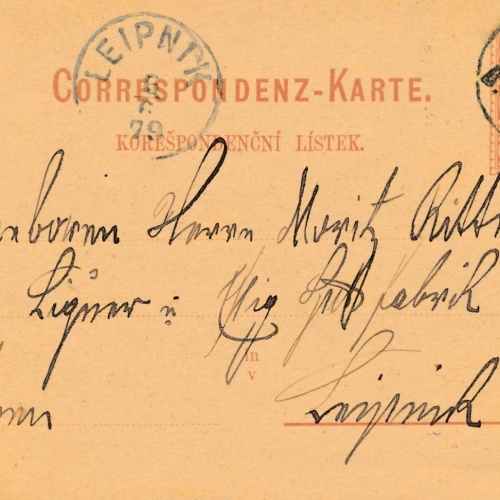 LEIPNIK
6
7
79
CORRESPONDENZ-KARTE.
KOREŠPONDENČNÍ LÍSTEK.
eboren Herrn Moritz Ritt
Liquer u Essig Fabrik
in
v
Leipnik